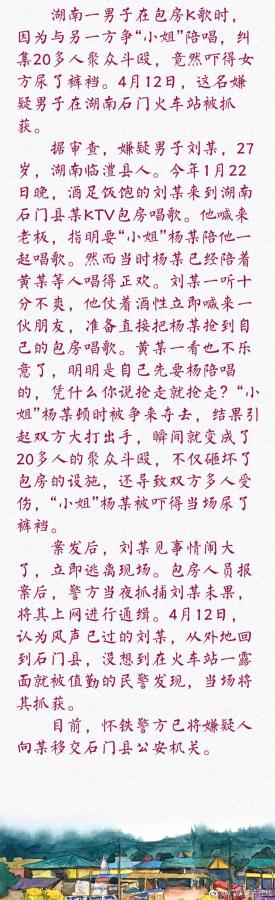 湖南一男子在包房K歌时,
因为与另一方争“小姐”陪唱，纠
集20多人聚众斗殴，竟然吓得女
方尿了裤裆。4月12日，这名嫌
疑男子在湖南石门火车站被抓
获。
据审查，嫌疑男子刘某，27
岁，湖南临澧县人。今年1月22
日晚，酒足饭饱的刘某来到湖南
石门县某KTV包房唱歌。他喊来
老板，指明要“小姐”杨某陪他一
起唱歌。然而当时杨某已经陪着
黄某等人唱得正欢。刘某一听十
分不爽，他仗着酒性立即喊来一
伙朋友，准备直接把杨某抢到自
己的包房唱歌。黄某一看也不乐
意了，明明是自己先要杨陪唱
的，凭什么你说抢走就抢走？“小
姐”杨某顿时被争来夺去，结果引
起双方大打出手，瞬间就变成了
20多人的聚众斗殴，不仅砸坏了
包房的设施，还导致双方多人受
伤，“小姐”杨某被吓得当场尿了
裤裆。
案发后，刘某见事情闹大
了，立即逃离现场。包房人员报
案后，警方当夜抓捕刘某未果，
将其上网进行通缉。4月12日，
认为风声已过的刘某，从外地回
到石门县，没想到在火车站一露
面就被值勤的民警发现，当场将
其抓获。
目前，怀铁警方已将嫌疑人
向某移交石门县公安机关。